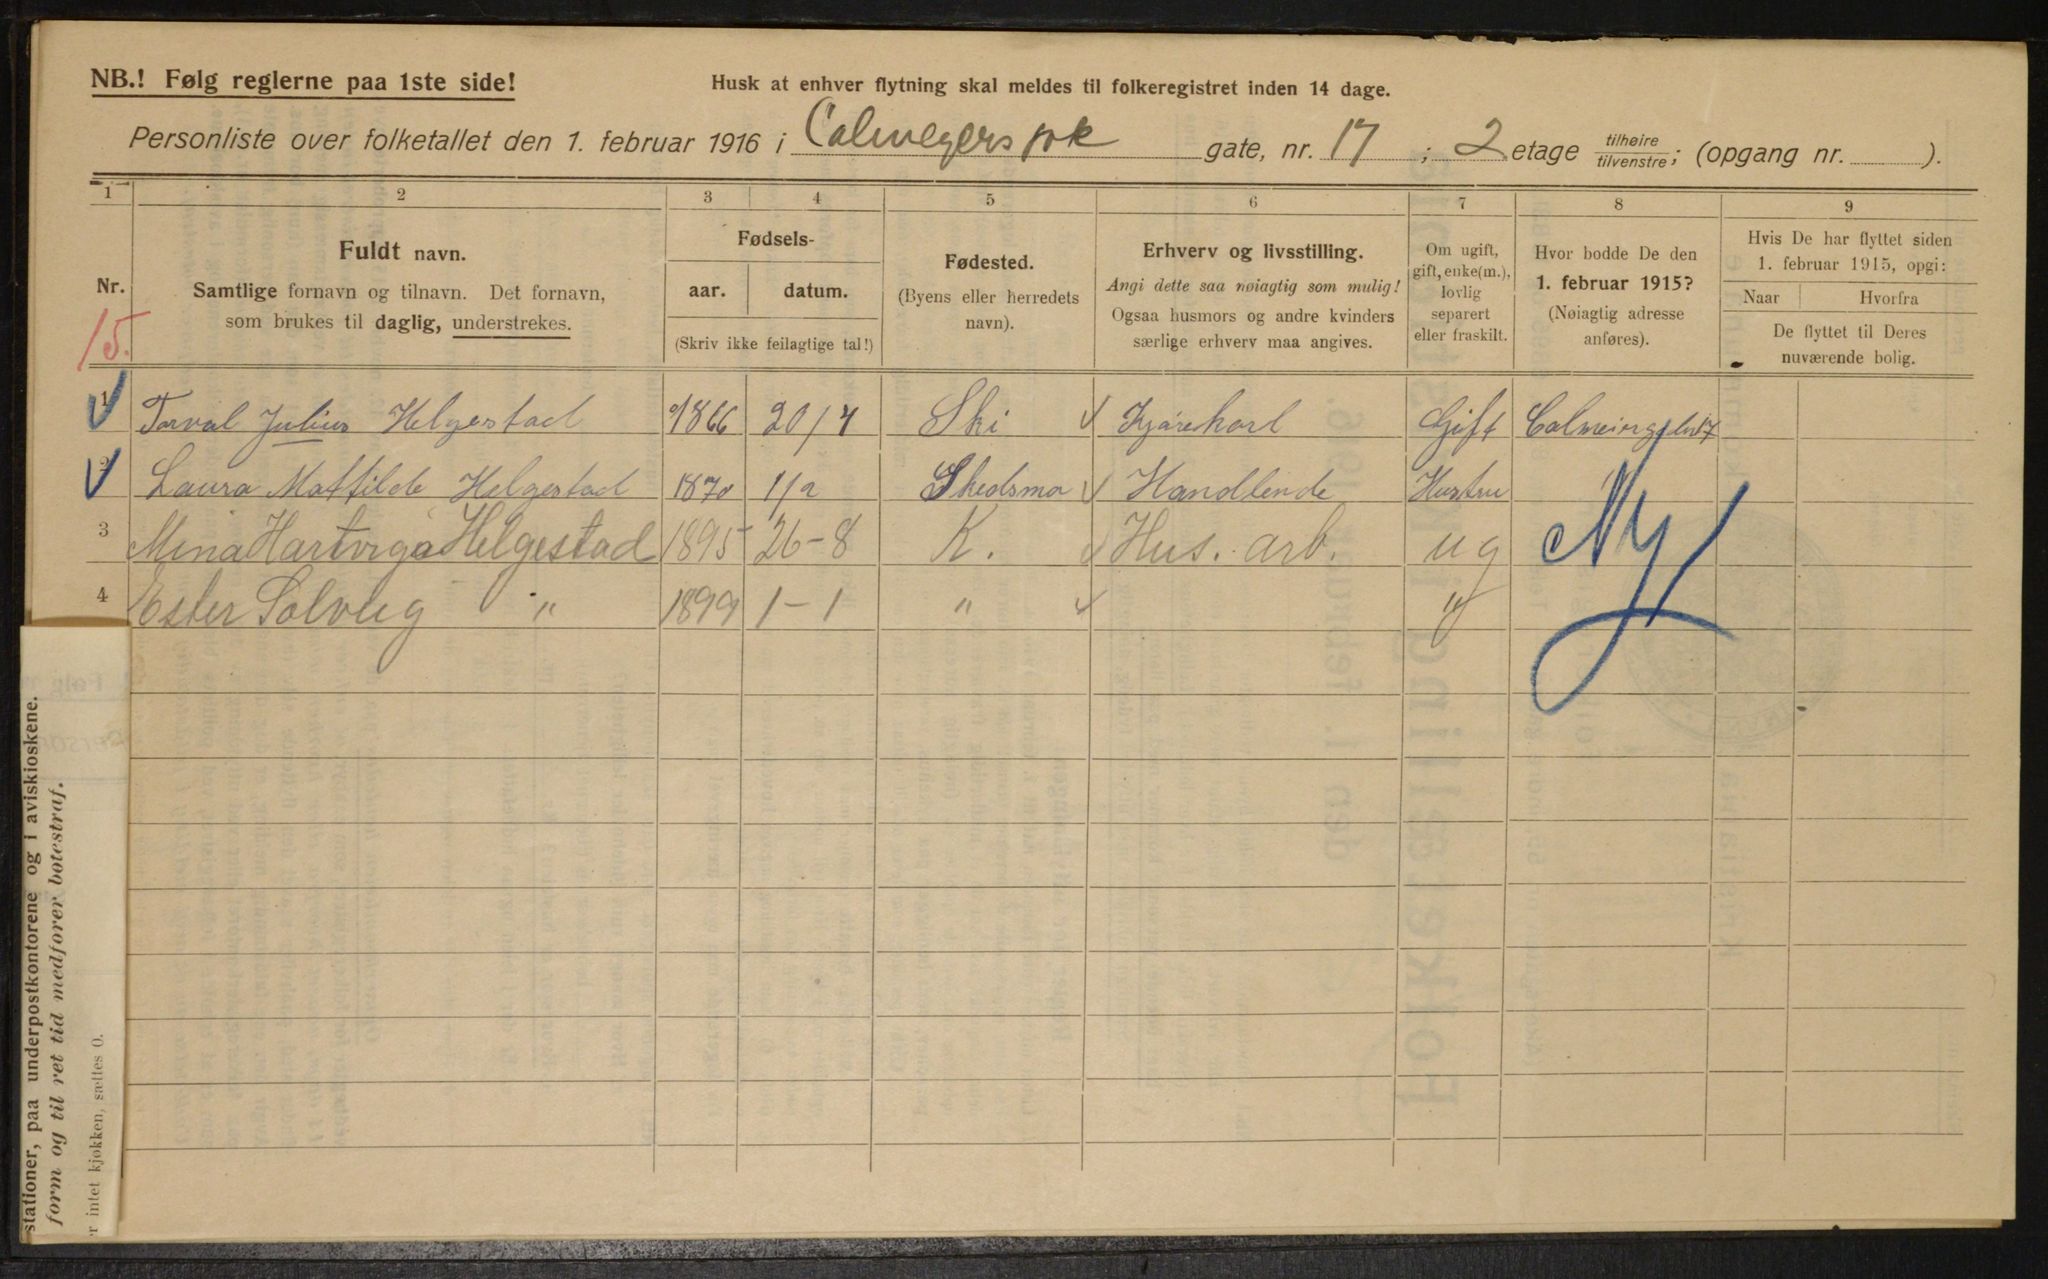 NB.! Følg reglerne paa 1ste side!
Husk at enhver flytning skal meldes til folkeregistret inden 14 dage.
Personliste over folketallet den 1. februar 1916 i Calmeyers gate, nr. 17; 2 etage tilhøire tilvenstre; (opgang nr. ).
1 2 3 4 5 6 7 8 9
Nr.
15.
Fuldt navn.
Samtlige fornavn og tilnavn. Det fornavn,
som brukes til daglig, understrekes.
Fødsels-
aar. datum.
(Skriv ikke feilagtige tal!)
Fødested.
(Byens eller herredets
navn).
Erhverv og livsstilling.
Angi dette saa nøiagtig som mulig!
Ogsaa husmors og andre kvinders
særlige erhverv maa angives.
Om ugift,
gift, enke(m.),
lovlig
separert
eller fraskilt.
Hvor bodde De den
1. februar 1915?
(Nøiagtig adresse
anføres).
Hvis De har flyttet siden
1. februar 1915, opgi:
Naar Hvorfra
De flyttet til Deres
nuværende bolig.
1 Torval Julius Helgestad 1866 20/7 Ski Kjørekarl Gift
2 Laura Mathilde Helgestad 1870 1/2 Skedsmo Handlende Hustru
3 Mina Hartviga Helgestad 1895 26-8 K. Hus. arb. ug
4 Ester Solveig " 1899 1-1 " "
Ny
stationer, paa underpostkontorene og i aviskioskene.
form og til ret tid medfører bøtestraf.
r intet kjøkken, sættes 0.